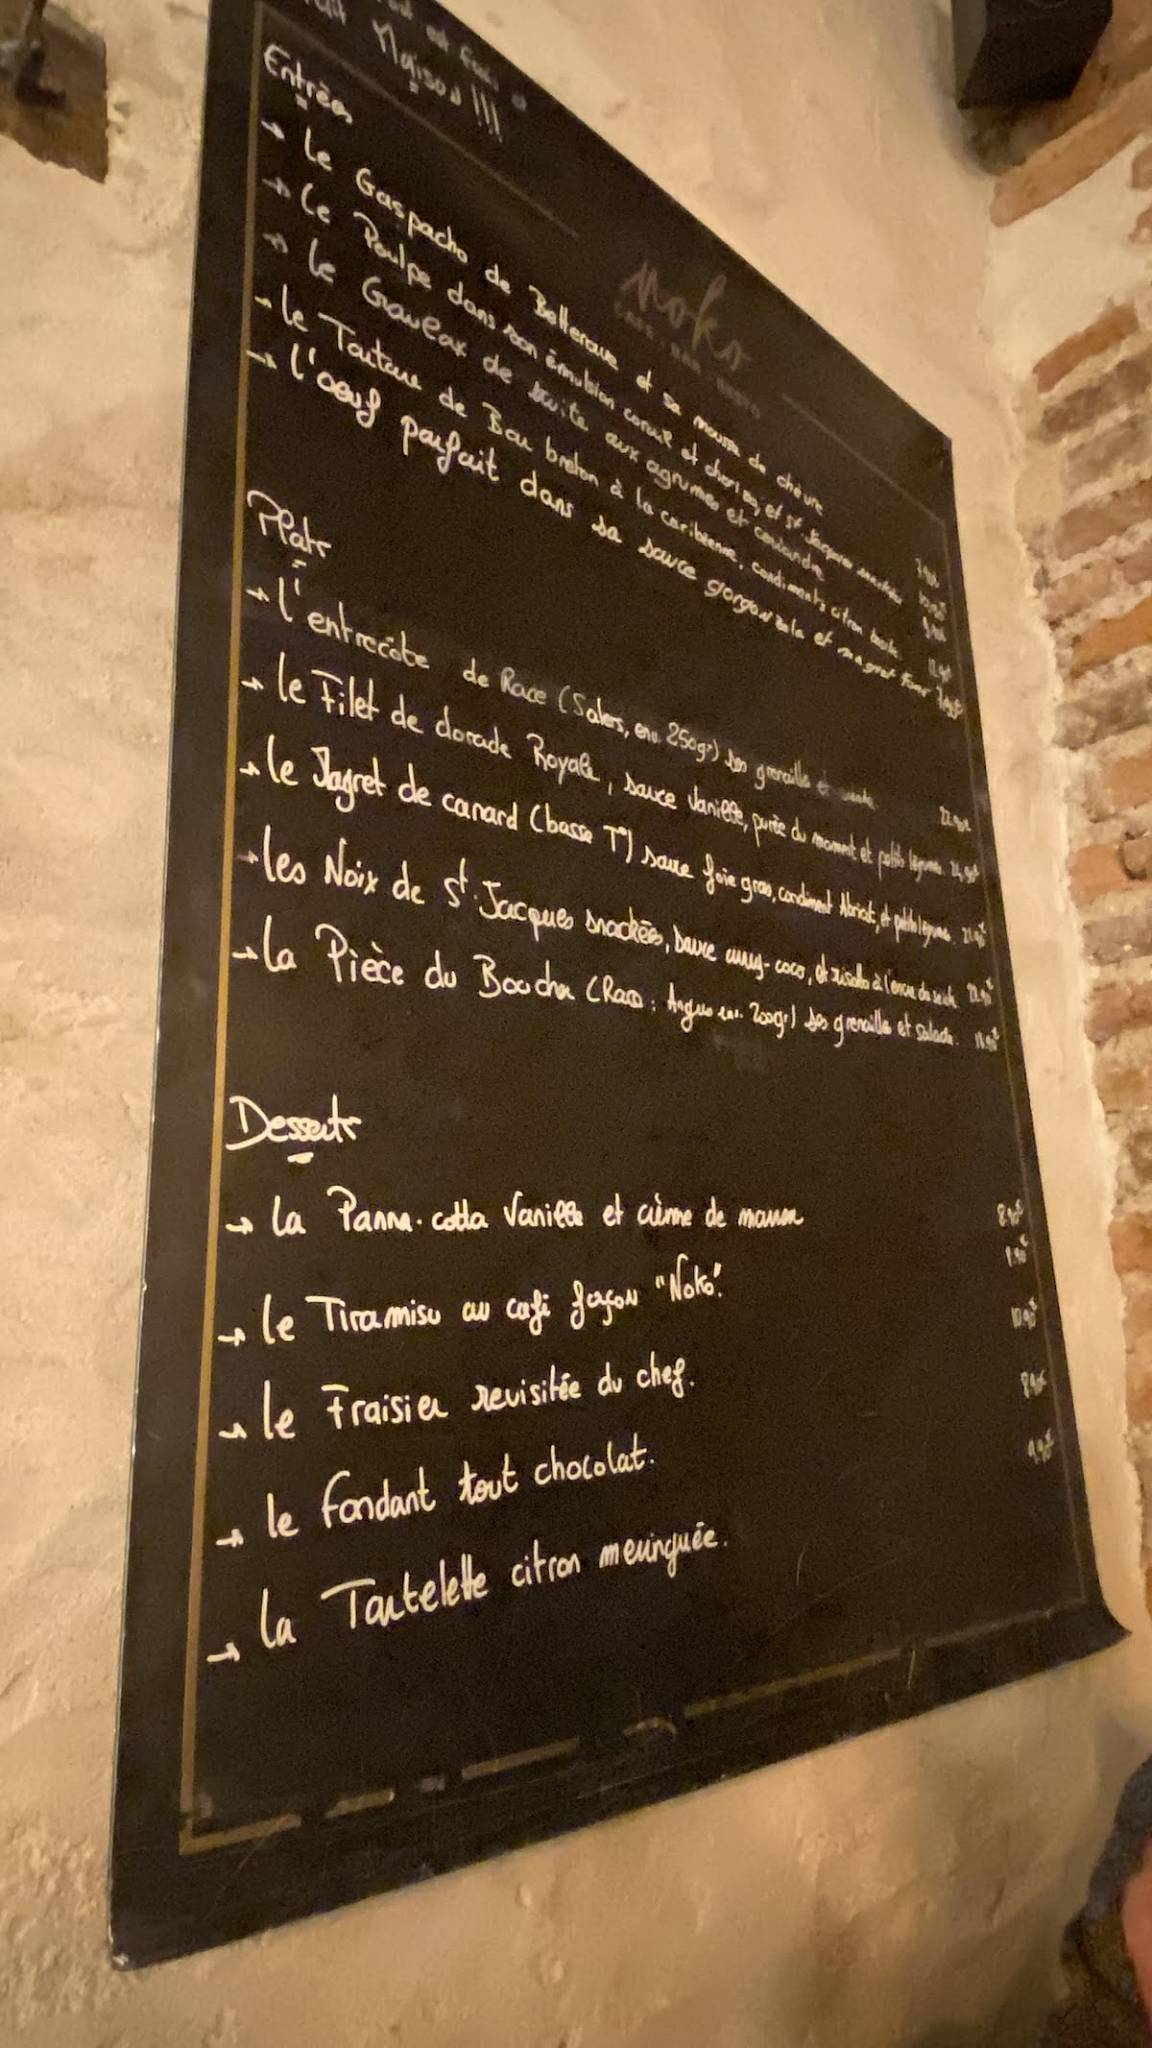 est fait
Maison!!!
noko
Entrées
→ Le Gaspacho de Betterave et sa mousse de chèvre
→ Le Poulpe dans son émulsion corail et chorizo, et St Jacques
→ Le Gravlax de truite aux agrumes et coriandre
→ Le Tartare de Bar breton à la caribéenne, condiments citron
→ L'oeuf parfait dans sa sauce gorgonzola et magret fumé
Plats
→ L'entrecôte de Race (Salers, env. 250gr) ses grenailles et
→ Le Filet de dorade Royale, sauce Vanille, purée du moment et petits légumes
→ Le Magret de canard (basse T°) sauce foie gras, condiment Abricot, et petits légumes
→ Les Noix de St Jacques snackées, sauce curry-coco, et risotto à l'encre de seiche
→ La Pièce du Boucher (Race: Angus env. 200gr) ses grenailles et salade.
Desserts
→ La Panna-cotta Vanille et crème de marron 8.90€
→ Le Tiramisu au café façon "Noko".
→ Le Fraisier revisitée du chef. 10.90€
→ Le fondant tout chocolat. 8.90€
→ La Tartelette citron meringuée. 9.90€